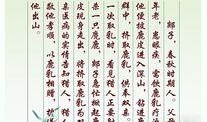 郯子，春秋时期人。父
年老，患眼疾，需饮鹿乳疗
他便披鹿皮进入深山，钻进
群中，挤取鹿乳，供奉双亲。
一次取乳时，看见猎人正要
杀一只麂鹿，郯子急忙掀起
皮现身走出，将挤取鹿乳为
亲医病的实情告知猎人，
敬他孝顺，以鹿乳相赠，
他出山。